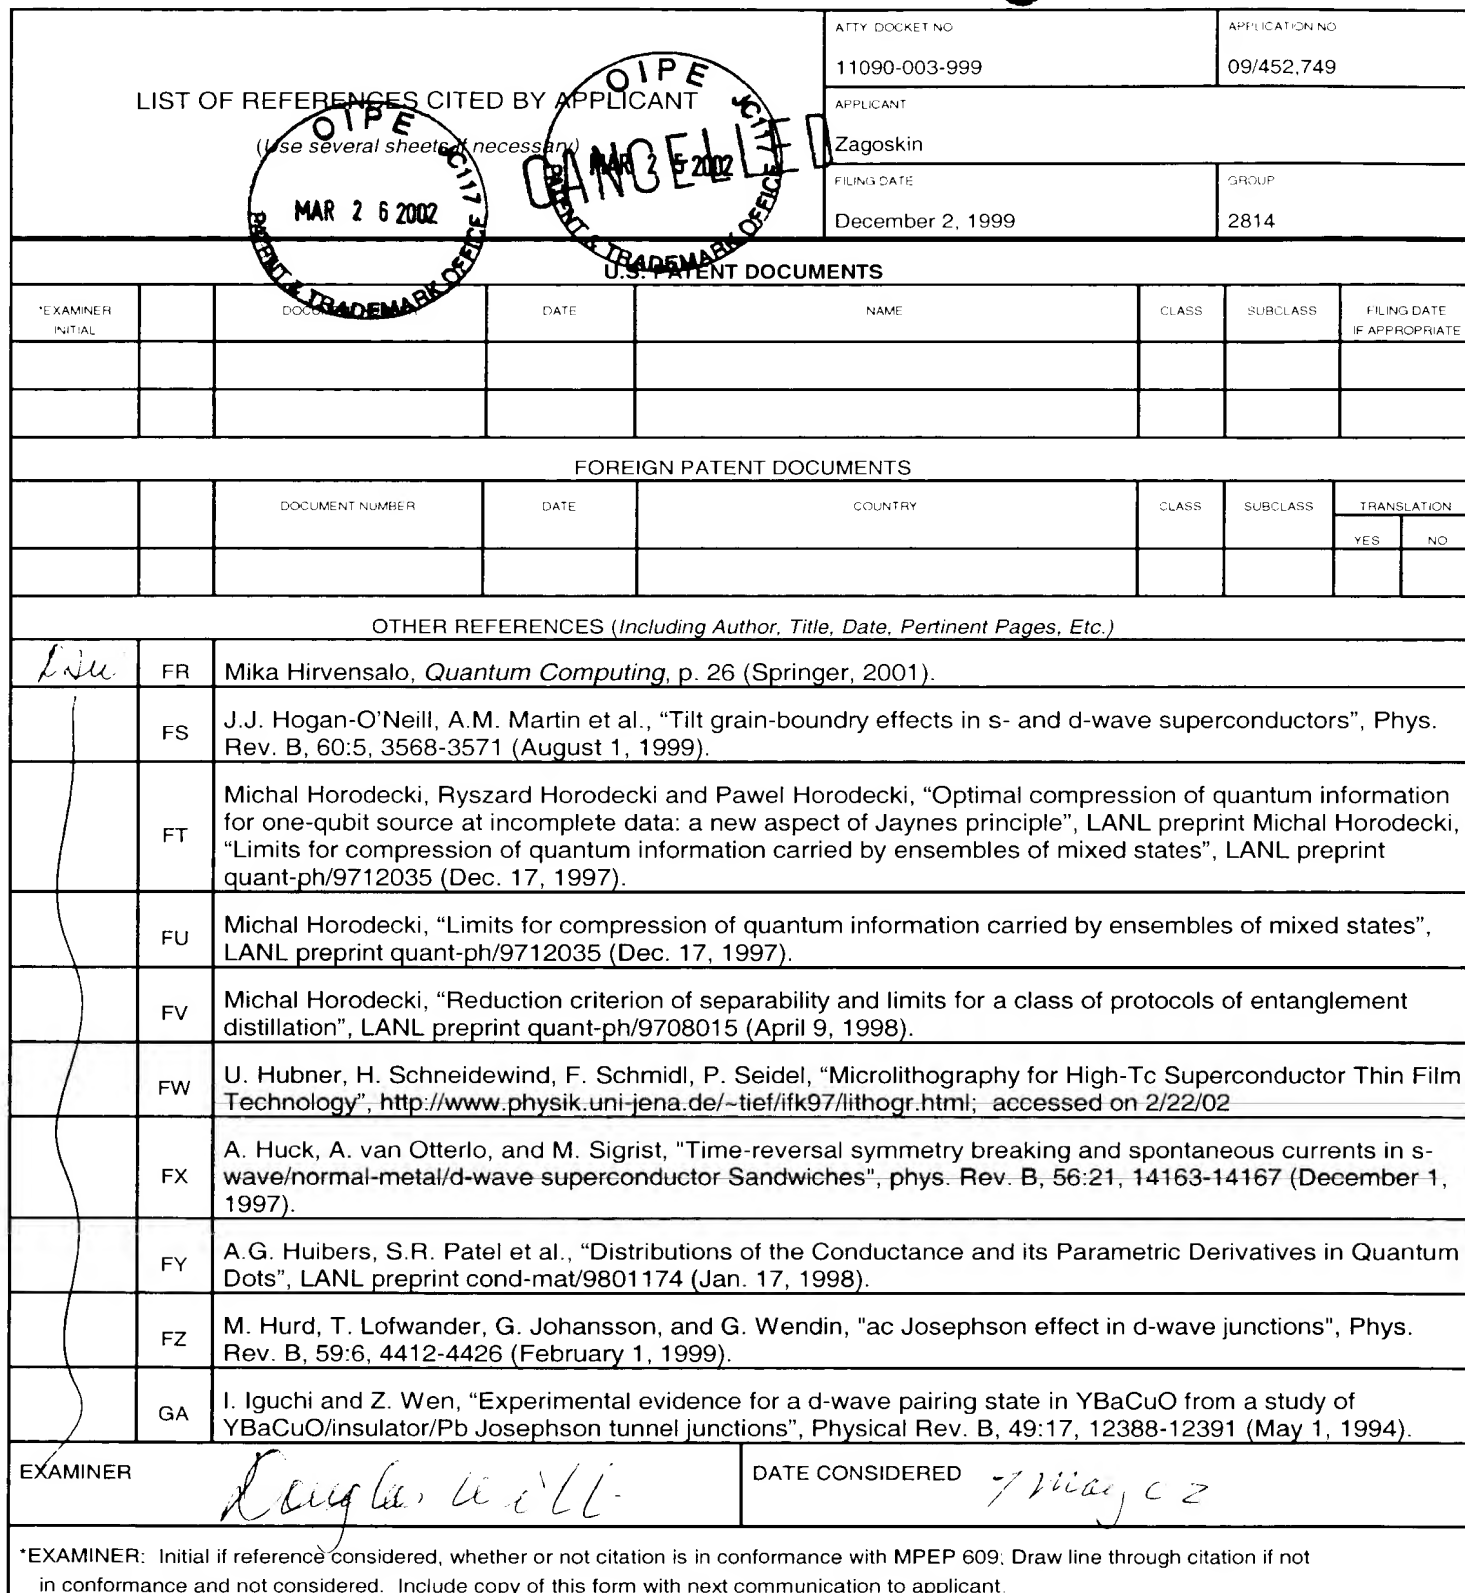 ATTY DOCKET NO
APPLICATION NO
11090-003-999
09/452,749
LIST OF REFERENCES CITED BY APPLICANT
(Use several sheets if necessary)
OIPE JC117
MAR 2 6 2002
PATENT & TRADEMARK OFFICE
OIPE JC117
MAR 2 5 2002
PATENT & TRADEMARK OFFICE
CANCELLED
APPLICANT
Zagoskin
FILING DATE
GROUP
December 2, 1999
2814
U.S. PATENT DOCUMENTS
*EXAMINER
INITIAL
DATE
NAME
CLASS
SUBCLASS
FILING DATE
IF APPROPRIATE
FOREIGN PATENT DOCUMENTS
DOCUMENT NUMBER
DATE
COUNTRY
CLASS
SUBCLASS
TRANSLATION
YES
NO
OTHER REFERENCES (Including Author, Title, Date, Pertinent Pages, Etc.)
FR
Mika Hirvensalo, Quantum Computing, p. 26 (Springer, 2001).
FS
J.J. Hogan-O'Neill, A.M. Martin et al., “Tilt grain-boundry effects in s- and d-wave superconductors”, Phys.
Rev. B, 60:5, 3568-3571 (August 1, 1999).
FT
Michal Horodecki, Ryszard Horodecki and Pawel Horodecki, “Optimal compression of quantum information
for one-qubit source at incomplete data: a new aspect of Jaynes principle”, LANL preprint Michal Horodecki,
“Limits for compression of quantum information carried by ensembles of mixed states”, LANL preprint
quant-ph/9712035 (Dec. 17, 1997).
FU
Michal Horodecki, “Limits for compression of quantum information carried by ensembles of mixed states”,
LANL preprint quant-ph/9712035 (Dec. 17, 1997).
FV
Michal Horodecki, “Reduction criterion of separability and limits for a class of protocols of entanglement
distillation”, LANL preprint quant-ph/9708015 (April 9, 1998).
FW
U. Hubner, H. Schneidewind, F. Schmidl, P. Seidel, “Microlithography for High-Tc Superconductor Thin Film
Technology”, http://www.physik.uni-jena.de/~tief/ifk97/lithogr.html; accessed on 2/22/02
FX
A. Huck, A. van Otterlo, and M. Sigrist, "Time-reversal symmetry breaking and spontaneous currents in s-
wave/normal-metal/d-wave superconductor Sandwiches", phys. Rev. B, 56:21, 14163-14167 (December 1,
1997).
FY
A.G. Huibers, S.R. Patel et al., “Distributions of the Conductance and its Parametric Derivatives in Quantum
Dots”, LANL preprint cond-mat/9801174 (Jan. 17, 1998).
FZ
M. Hurd, T. Lofwander, G. Johansson, and G. Wendin, "ac Josephson effect in d-wave junctions", Phys.
Rev. B, 59:6, 4412-4426 (February 1, 1999).
GA
I. Iguchi and Z. Wen, “Experimental evidence for a d-wave pairing state in YBaCuO from a study of
YBaCuO/insulator/Pb Josephson tunnel junctions”, Physical Rev. B, 49:17, 12388-12391 (May 1, 1994).
EXAMINER
Douglas Wille
DATE CONSIDERED
7 May 02
*EXAMINER: Initial if reference considered, whether or not citation is in conformance with MPEP 609; Draw line through citation if not
in conformance and not considered. Include copy of this form with next communication to applicant.